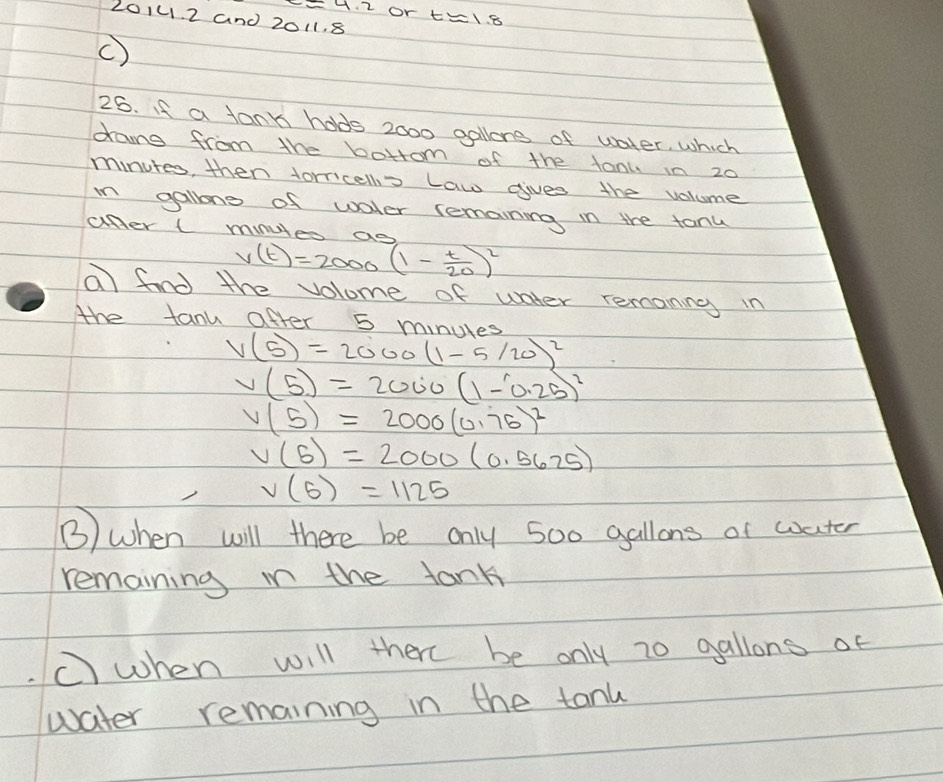 t≈4.2 or t≈1.8
2014.2 and 2011.8
c)
25. if a tank holds 2000 gallons of water, which
drains from the bottom of the tank in 20
minutes, then torricellis Law gives the volume
in gallons of water remaining in the tank
after t minutes as
v(t)=2000(1-t/20)²
a) find the volume of water remaining in
the tank after 5 minutes
v(5) = 2000(1-5/20)²
v(5) = 2000(1-0.25)²
v(5) = 2000(0.75)²
v(5) = 2000(0.5625)
v(5) = 1125
B) when will there be only 500 gallons of water
remaining in the tank
c) when will there be only 20 gallons of
water remaining in the tank